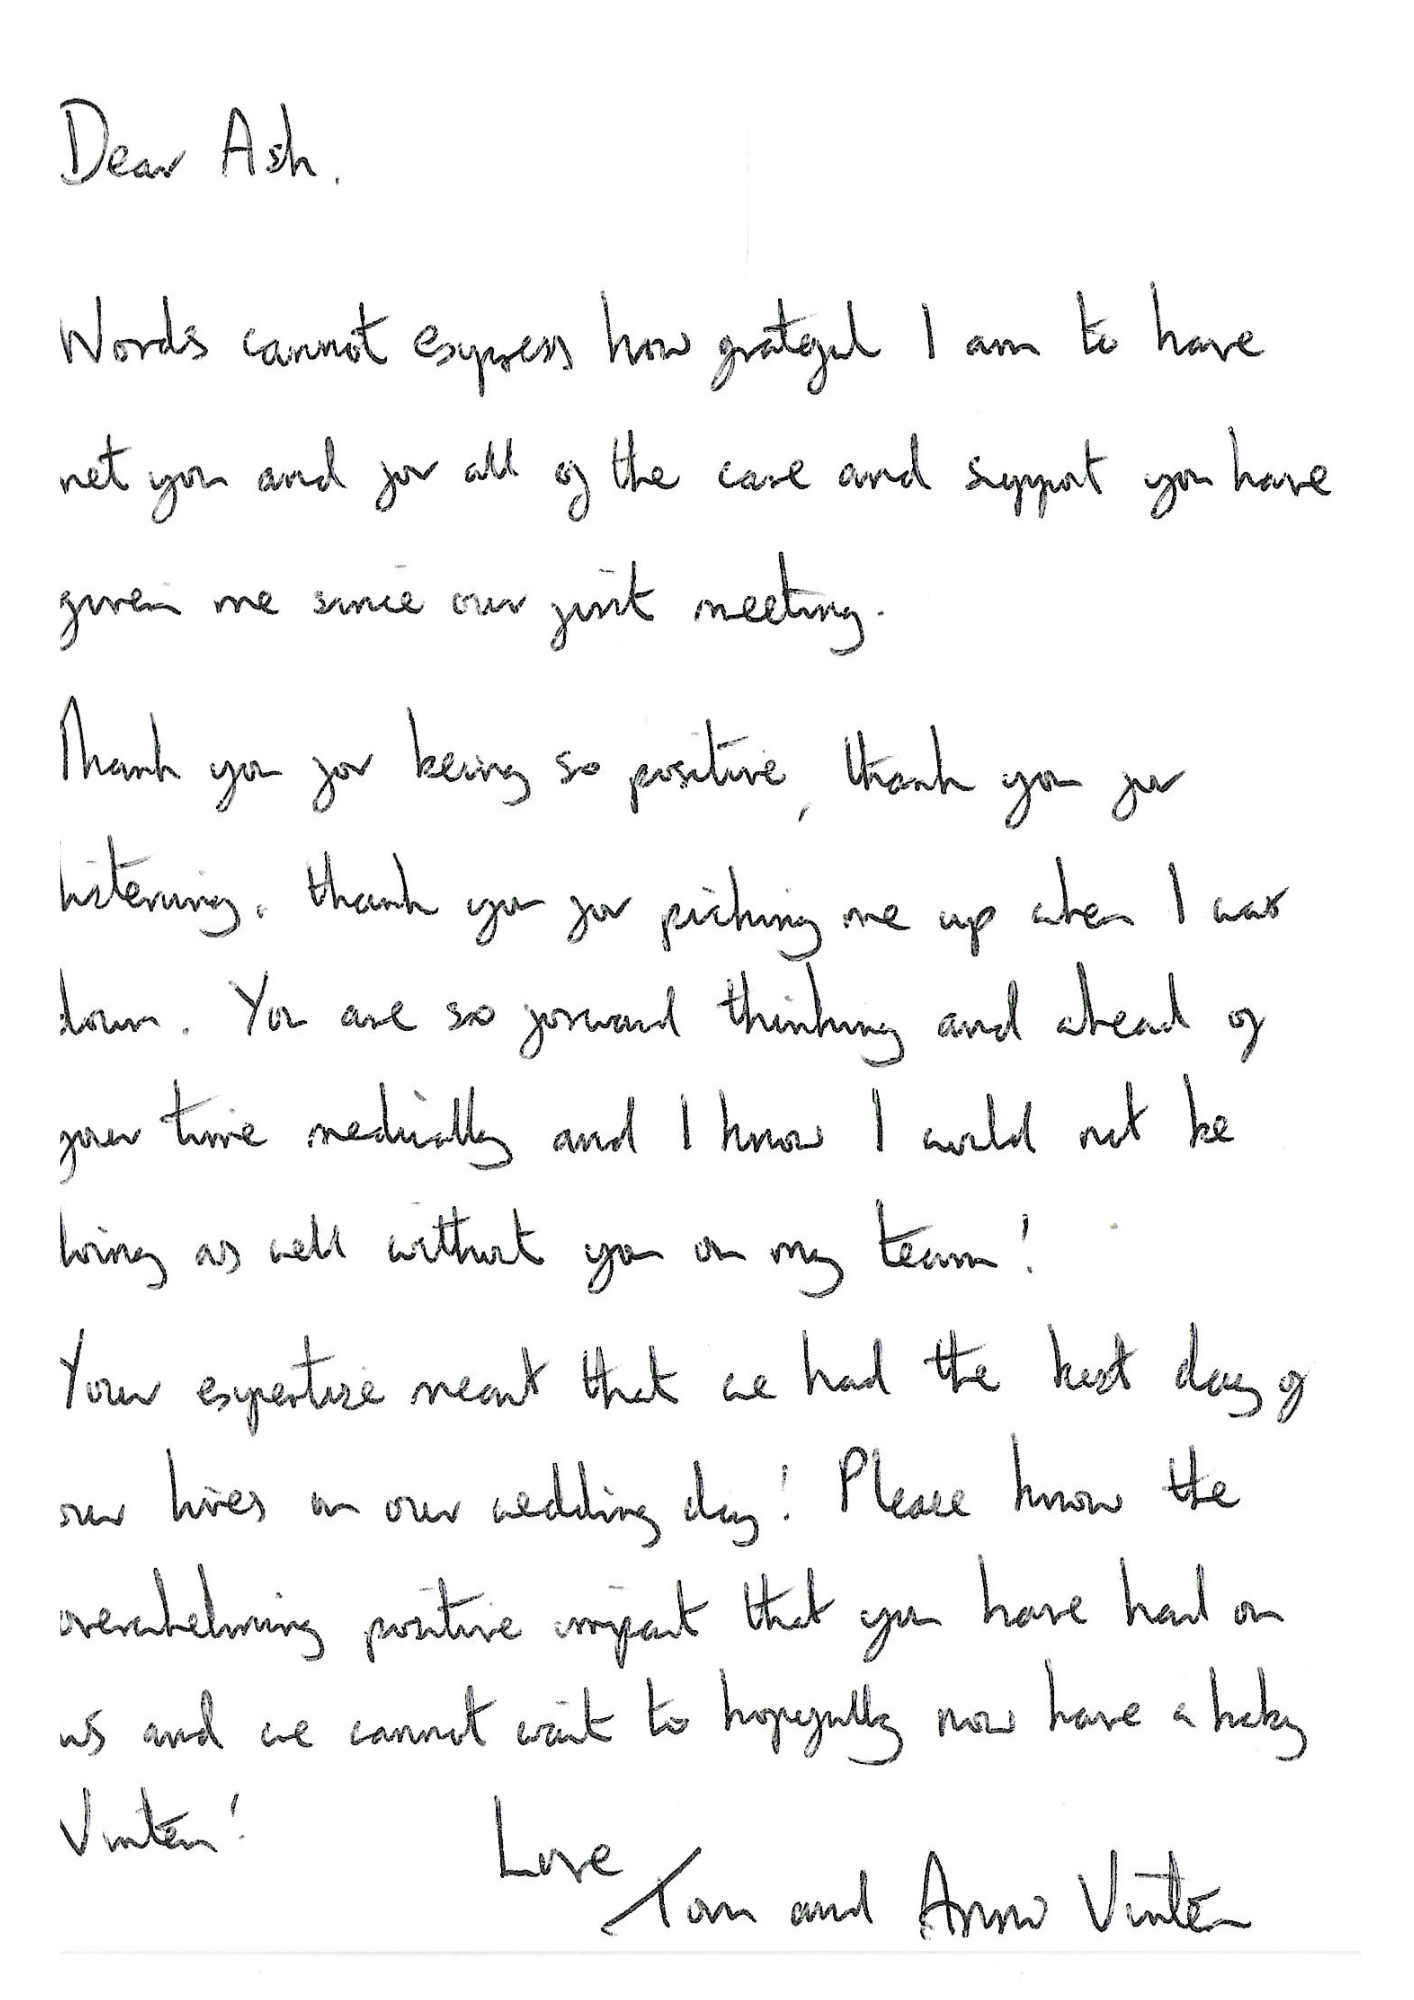 Dear Ash.
Words cannot express how grateful I am to have
met you and for all of the care and support you have
given me since our first meeting.
Thank you for being so positive, thank you for
listening. thank you for picking me up when I was
down. You are so forward thinking and ahead of
your time medically and I know I would not be
living as well without you on my team!
Your expertise meant that we had the best day of
our lives on our wedding day! Please know the
overwhelming positive impact that you have had on
us and we cannot wait to hopefully now have a baby
Vinten!
Love
Tom and Vinten